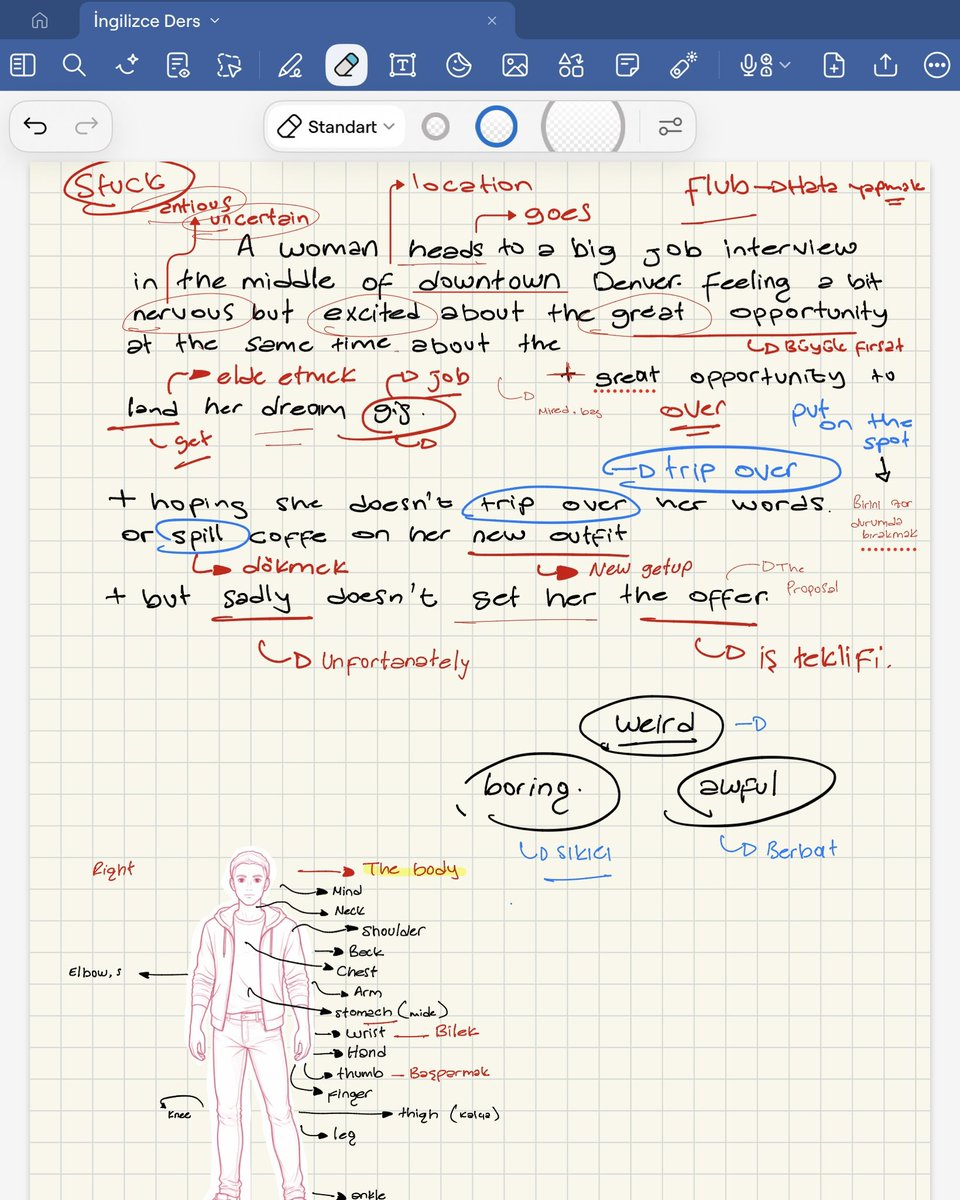 İngilizce Ders
Standart
Stuck
antious
uncertain
location
goes
flub → Hata yapmak
A woman heads to a big job interview
in the middle of downtown Denver. Feeling a bit
nervous but excited about the great opportunity
at the same time about the
Büyük fırsat
elde etmek
job
+ great opportunity to
land her dream gig.
get
over
put on the spot
trip over
+ hoping she doesn't trip over her words.
or spill coffe on her new outfit
Birini zor
durumda
bırakmak
dökmek
New getup
The
Proposal
+ but sadly doesn't get her the offer.
Unfortanately
iş teklifi.
weird
boring.
awful
sıkıcı
Berbat
Right
The body
Mind
Neck
Shoulder
Back
Chest
Elbow, s
Arm
stomach (mide)
wrist — Bilek
Hand
thumb — Başparmak
Finger
Knee
thigh (kalça)
leg
ankle